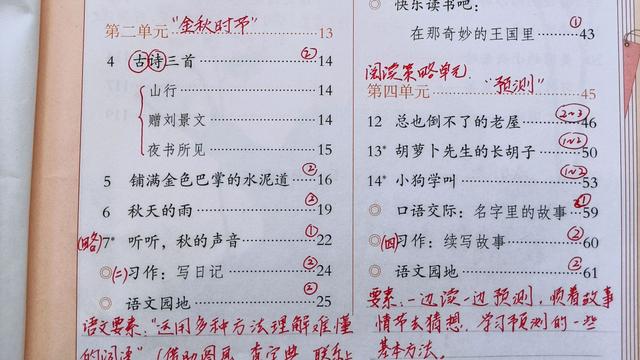 第二单元 "金秋时节" 13
4 古诗三首 ② 14
山行 14
赠刘景文 14
夜书所见 15
5 铺满金色巴掌的水泥道 ② 16
6 秋天的雨 ② 19
(略) 7* 听听，秋的声音 ① 22
◎ (二) 习作：写日记 ② 24
◎ 语文园地 ② 25
语文要素："运用多种方法理解难懂
的词语"（借助图画、查字典、联系上
快乐读书吧：
在那奇妙的王国里 ① 43
阅读策略单元. "预测"
第四单元 45
12 总也倒不了的老屋 2~3 46
13* 胡萝卜先生的长胡子 1~2 50
14* 小狗学叫 1~2 53
◎ 口语交际：名字里的故事 ① 59
◎ (四) 习作：续写故事 ② 60
◎ 语文园地 ② 61
要素：一边读一边预测，顺着故事
情节去猜想. 学习预测的一些
基本方法。